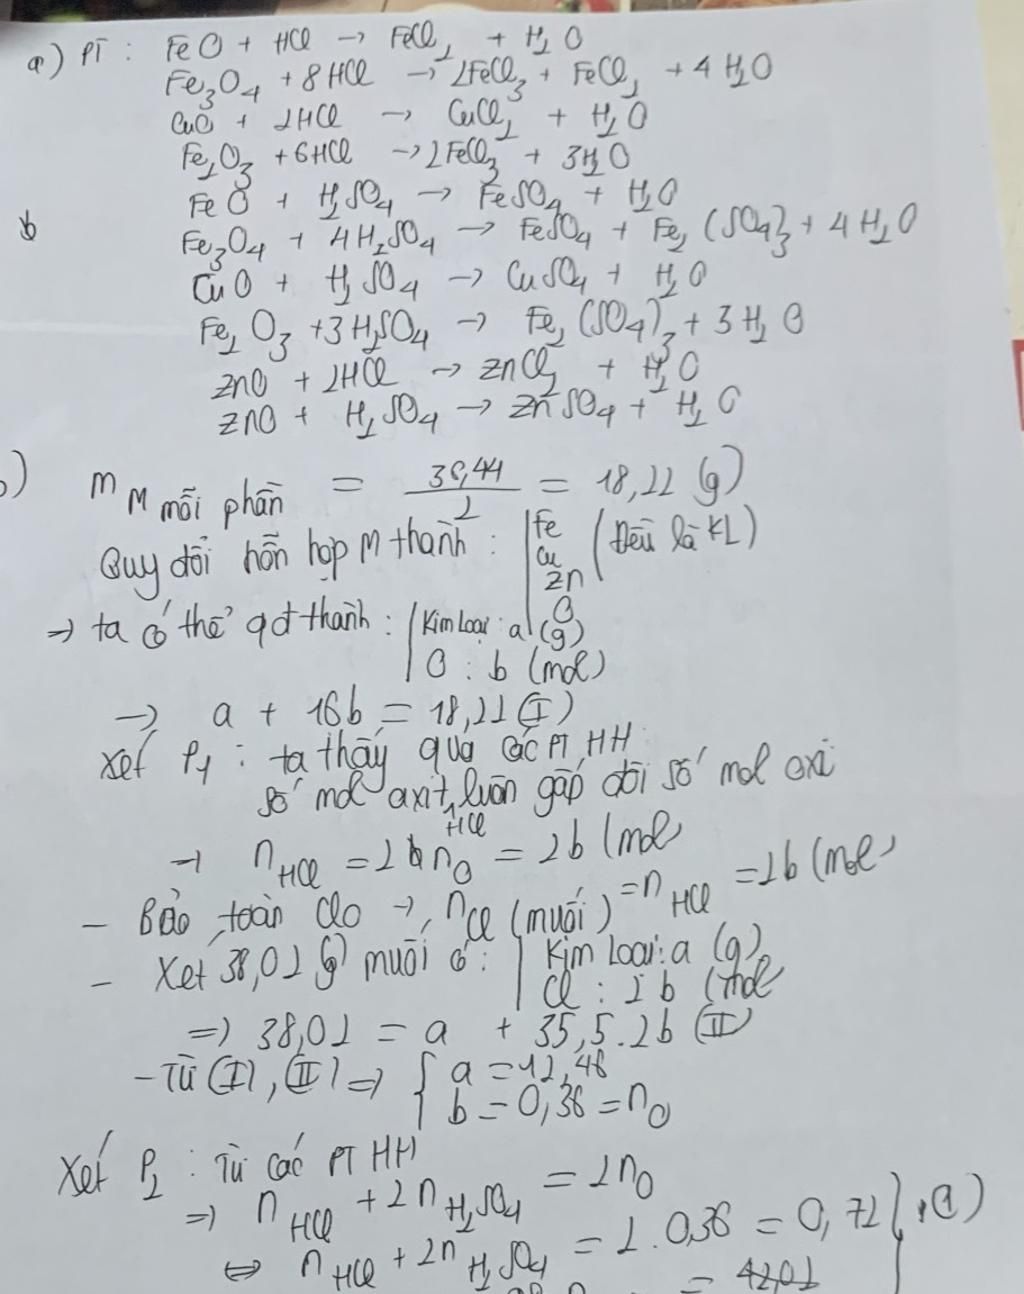 a) PT : FeO + HCl → FeCl2 + H2O
Fe3O4 + 8HCl → 2FeCl3 + FeCl2 + 4H2O
CuO + 2HCl → CuCl2 + H2O
Fe2O3 + 6HCl → 2FeCl3 + 3H2O
FeO + H2SO4 → FeSO4 + H2O
b Fe3O4 + 4H2SO4 → FeSO4 + Fe2(SO4)3 + 4H2O
CuO + H2SO4 → CuSO4 + H2O
Fe2O3 + 3H2SO4 → Fe2(SO4)3 + 3H2O
ZnO + 2HCl → ZnCl2 + H2O
ZnO + H2SO4 → ZnSO4 + H2O
b) mM mỗi phần = 36,44/2 = 18,22 (g)
Quy đổi hỗn hợp M thành : Fe Cu Zn (Đều là KL)
O
→ ta có thể qđ thành : Kim Loại : a (g)
O : b (mol)
→ a + 16b = 18,22 (I)
Xét P1 : ta thấy qua các PT HH
số mol axit HCl luôn gấp đôi số mol oxi
→ nHCl = 2 nO = 2b (mol
- Bảo toàn Clo → nCl (muối) = nHCl = 2b (mol
- Xét 38,02 (g) muối có : Kim Loại : a (g)
Cl : 2b (mol
=> 38,02 = a + 35,5.2b (II)
- Từ (I), (II) => { a = 12,46
b = 0,36 = nO
Xét P2 : Từ các PT HH
=> nHCl + 2nH2SO4 = 2nO
⇔ nHCl + 2nH2SO4 = 2.0,36 = 0,72 } (1)
= 42,02